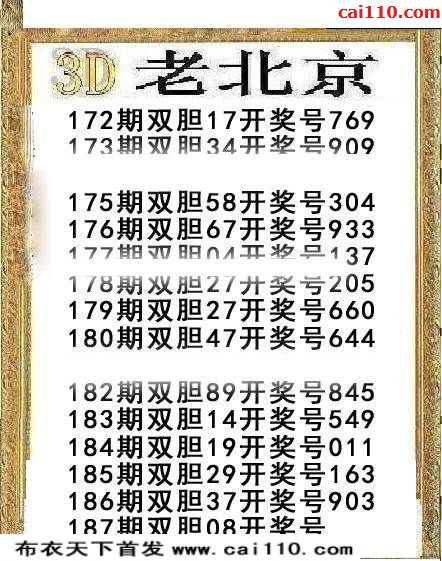 cai110.com
3D 老北京
172期双胆17开奖号769
173期双胆34开奖号909
175期双胆58开奖号304
176期双胆67开奖号933
177期双胆04开奖号137
178期双胆27开奖号205
179期双胆27开奖号660
180期双胆47开奖号644
182期双胆89开奖号845
183期双胆14开奖号549
184期双胆19开奖号011
185期双胆29开奖号163
186期双胆37开奖号903
187期双胆08开奖号
布衣天下首发 www.cai110.com